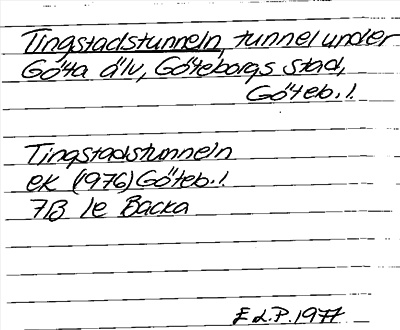 Tingstadstunneln, tunnel under
Göta älv, Göteborgs stad,
Göteb. l.
Tingstadstunneln
ek (1976) Göteb. l.
7B 1e Backa
E L.P. 1977